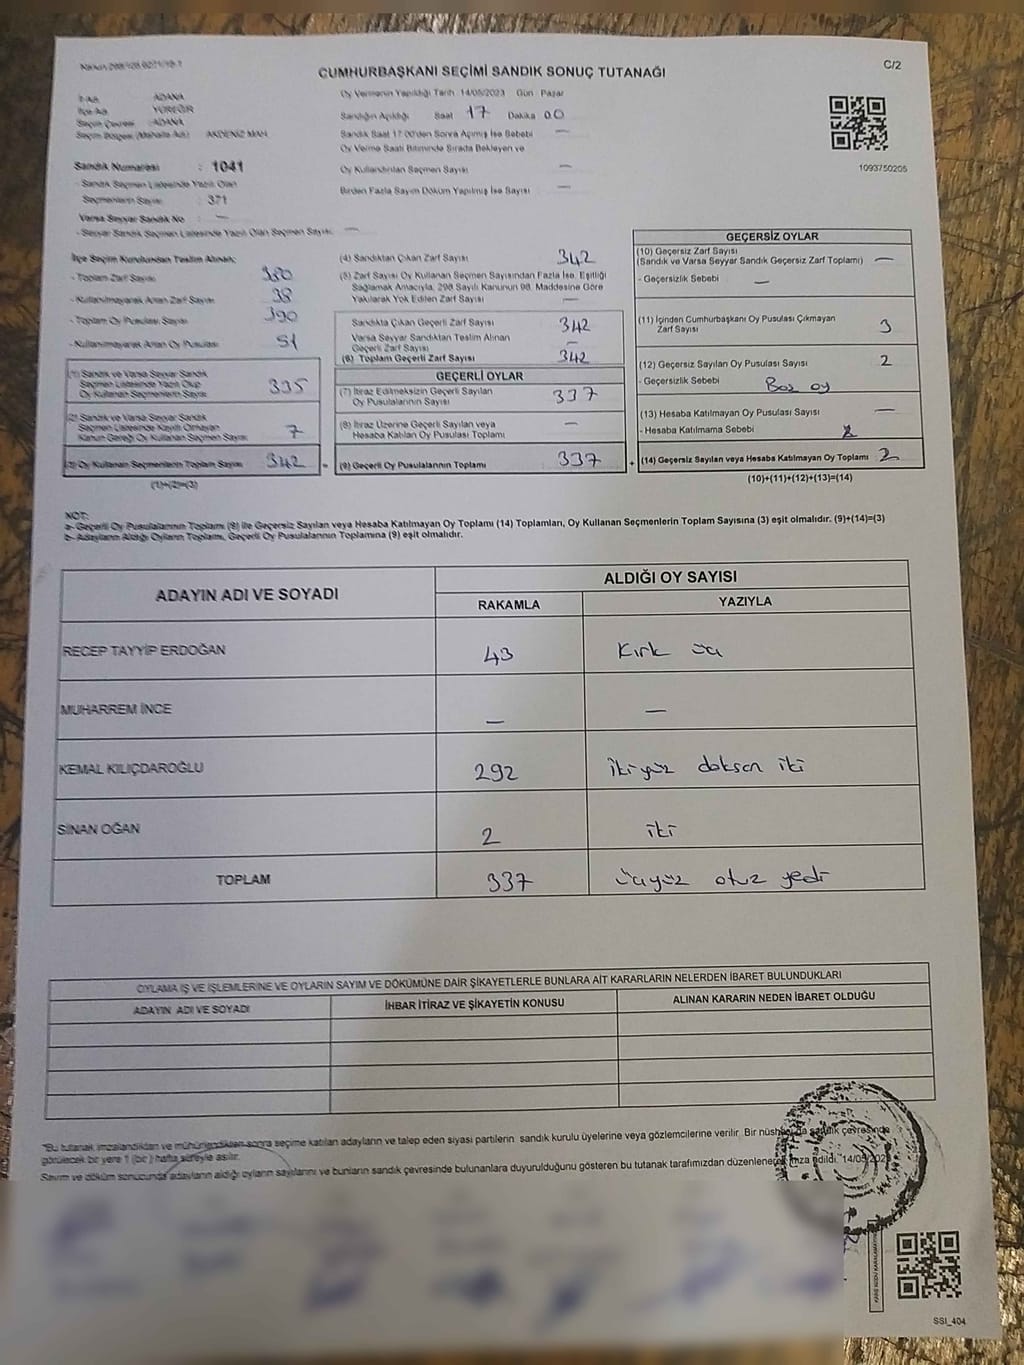 C/2
CUMHURBAŞKANI SEÇİMİ SANDIK SONUÇ TUTANAĞI
İl Adı ADANA
İlçe Adı YÜREĞİR
Seçim Çevresi ADANA
Seçim Bölgesi (Mahalle Adı) AKDENİZ MAH.
Sandık Numarası : 1041
- Sandık Seçmen Listesinde Yazılı Olan
Seçmenlerin Sayısı : 371
Varsa Seyyar Sandık No : —
- Seyyar Sandık Seçmen Listesinde Yazılı Olan Seçmen Sayısı: —
Oy Vermenin Yapıldığı Tarih: 14/05/2023 Gün: Pazar
Sandığın Açıldığı Saat 17 Dakika 00
Sandık Saat 17.00'den Sonra Açılmış İse Sebebi —
Oy Verme Saati Bitiminde Sırada Bekleyen ve
Oy Kullandırılan Seçmen Sayısı —
Birden Fazla Sayım Döküm Yapılmış İse Sayısı —
1093750205
İlçe Seçim Kurulundan Teslim Alınan;
- Toplam Zarf Sayısı 380
- Kullanılmayarak Artan Zarf Sayısı 38
- Toplam Oy Pusulası Sayısı 390
- Kullanılmayarak Artan Oy Pusulası 51
(1) Sandık ve Varsa Seyyar Sandık
Seçmen Listesinde Yazılı Olup
Oy Kullanan Seçmenlerin Sayısı 335
(2) Sandık ve Varsa Seyyar Sandık
Seçmen Listesinde Kayıtlı Olmayan
Kanun Gereği Oy Kullanan Seçmen Sayısı 7
(3) Oy Kullanan Seçmenlerin Toplam Sayısı 342
(1)+(2)=(3)
(4) Sandıktan Çıkan Zarf Sayısı 342
(5) Zarf Sayısı Oy Kullanan Seçmen Sayısından Fazla İse, Eşitliği
Sağlamak Amacıyla, 298 Sayılı Kanunun 98. Maddesine Göre
Yakılarak Yok Edilen Zarf Sayısı —
Sandıkta Çıkan Geçerli Zarf Sayısı 342
Varsa Seyyar Sandıktan Teslim Alınan
Geçerli Zarf Sayısı —
(6) Toplam Geçerli Zarf Sayısı 342
GEÇERLİ OYLAR
(7) İtiraz Edilmeksizin Geçerli Sayılan
Oy Pusulalarının Sayısı 337
(8) İtiraz Üzerine Geçerli Sayılan veya
Hesaba Katılan Oy Pusulası Toplamı —
= (9) Geçerli Oy Pusulalarının Toplamı 337
GEÇERSİZ OYLAR
(10) Geçersiz Zarf Sayısı
(Sandık ve Varsa Seyyar Sandık Geçersiz Zarf Toplamı) —
- Geçersizlik Sebebi —
(11) İçinden Cumhurbaşkanı Oy Pusulası Çıkmayan
Zarf Sayısı 3
(12) Geçersiz Sayılan Oy Pusulası Sayısı 2
- Geçersizlik Sebebi Boş oy
(13) Hesaba Katılmayan Oy Pusulası Sayısı —
- Hesaba Katılmama Sebebi
+ (14) Geçersiz Sayılan veya Hesaba Katılmayan Oy Toplamı 2
(10)+(11)+(12)+(13)=(14)
NOT:
a- Geçerli Oy Pusulalarının Toplamı (9) ile Geçersiz Sayılan veya Hesaba Katılmayan Oy Toplamı (14) Toplamları, Oy Kullanan Seçmenlerin Toplam Sayısına (3) eşit olmalıdır. (9)+(14)=(3)
b- Adayların Aldığı Oyların Toplamı, Geçerli Oy Pusulalarının Toplamına (9) eşit olmalıdır.
ADAYIN ADI VE SOYADI ALDIĞI OY SAYISI
RAKAMLA YAZIYLA
RECEP TAYYİP ERDOĞAN 43 Kırk üç
MUHARREM İNCE — —
KEMAL KILIÇDAROĞLU 292 İkiyüz doksan iki
SİNAN OĞAN 2 İki
TOPLAM 337 Üçyüz otuz yedi
OYLAMA İŞ VE İŞLEMLERİNE VE OYLARIN SAYIM VE DÖKÜMÜNE DAİR ŞİKAYETLERLE BUNLARA AİT KARARLARIN NELERDEN İBARET BULUNDUKLARI
ADAYIN ADI VE SOYADI İHBAR İTİRAZ VE ŞİKAYETİN KONUSU ALINAN KARARIN NEDEN İBARET OLDUĞU
"Bu tutanak imzalandıktan ve mühürlendikten sonra seçime katılan adayların ve talep eden siyasi partilerin sandık kurulu üyelerine veya gözlemcilerine verilir. Bir nüshası da sandık çevresinde
görülecek bir yere 1 (bir) hafta süreyle asılır.
Sayım ve döküm sonucunda adayların aldığı oyların sayılarını ve bunların sandık çevresinde bulunanlara duyurulduğunu gösteren bu tutanak tarafımızdan düzenlenerek imza edildi. 14/05/2023
SSI_404